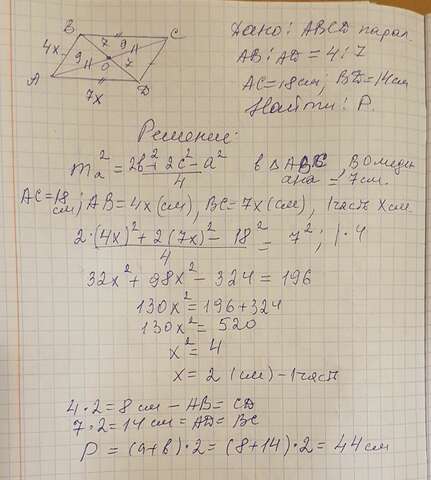 B C
4x 7 9
9 О 7
A D
7x
Дано: ABCD парал.
AB : AD = 4 : 7
AC = 18 см; BD = 14 см
Найти: P.
Решение:
m_a^2 = (2b^2 + 2c^2 - a^2)/4 в △ ABC, BO медиана = 7 см.
AC = 18 см; AB = 4x (см), BC = 7x (см), 1 часть X см.
(2·(4x)^2 + 2(7x)^2 - 18^2)/4 = 7^2; | · 4
32x^2 + 98x^2 - 324 = 196
130x^2 = 196 + 324
130x^2 = 520
x^2 = 4
x = 2 (см) - 1 часть
4 · 2 = 8 см - AB = CD
7 · 2 = 14 см = AD = BC
P = (a+b) · 2 = (8+14) · 2 = 44 см